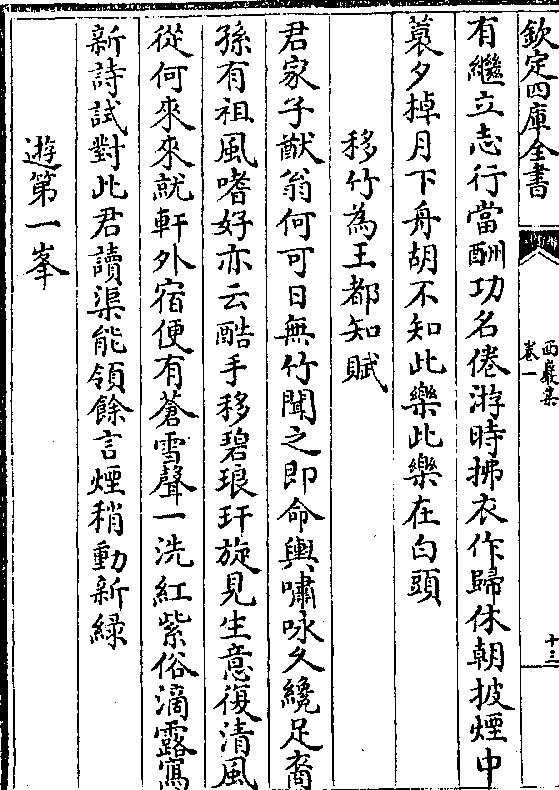 欽定四庫全書
西巖集
卷一
十三
有繼立志行當酬功名倦游時拂衣作歸休朝披煙中
蓑夕掉月下舟胡不知此樂此樂在白頭
移竹為王都知賦
君家子猷翁何可日無竹聞之即命輿嘯咏久纔足裔
孫有祖風嗜好亦云酷手移碧琅玕旋見生意復清風
從何來來就軒外宿便有蒼雪聲一洗紅紫俗滴露寫
新詩試對此君讀渠能領餘言煙稍動新緑
遊第一峯